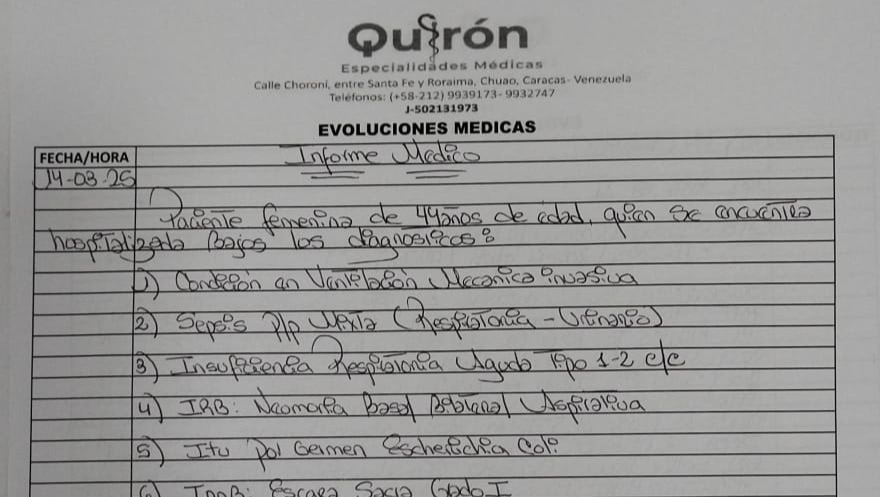 Quirón
Especialidades Médicas
Calle Choroní, entre Santa Fe y Roraima, Chuao, Caracas- Venezuela
Teléfonos: (+58-212) 9939173- 9932747
J-502131973
EVOLUCIONES MEDICAS
FECHA/HORA Informe Medico
14-03-25
Paciente femenina de 44 años de edad, quien se encuentra
hospitalizada Bajos los diagnosticos:
1) Condición en Ventilación Mecanica invasiva
2) Sepsis p/p Mixta (Respiratoria - Urinario)
3) Insuficiencia Respiratoria Aguda Tipo 1-2 c/c
4) IRB: Neomonia Basal Bilateral Aspirativa
5) Itu por Germen Escherichia Coli
6) Escara Sacra Grado I